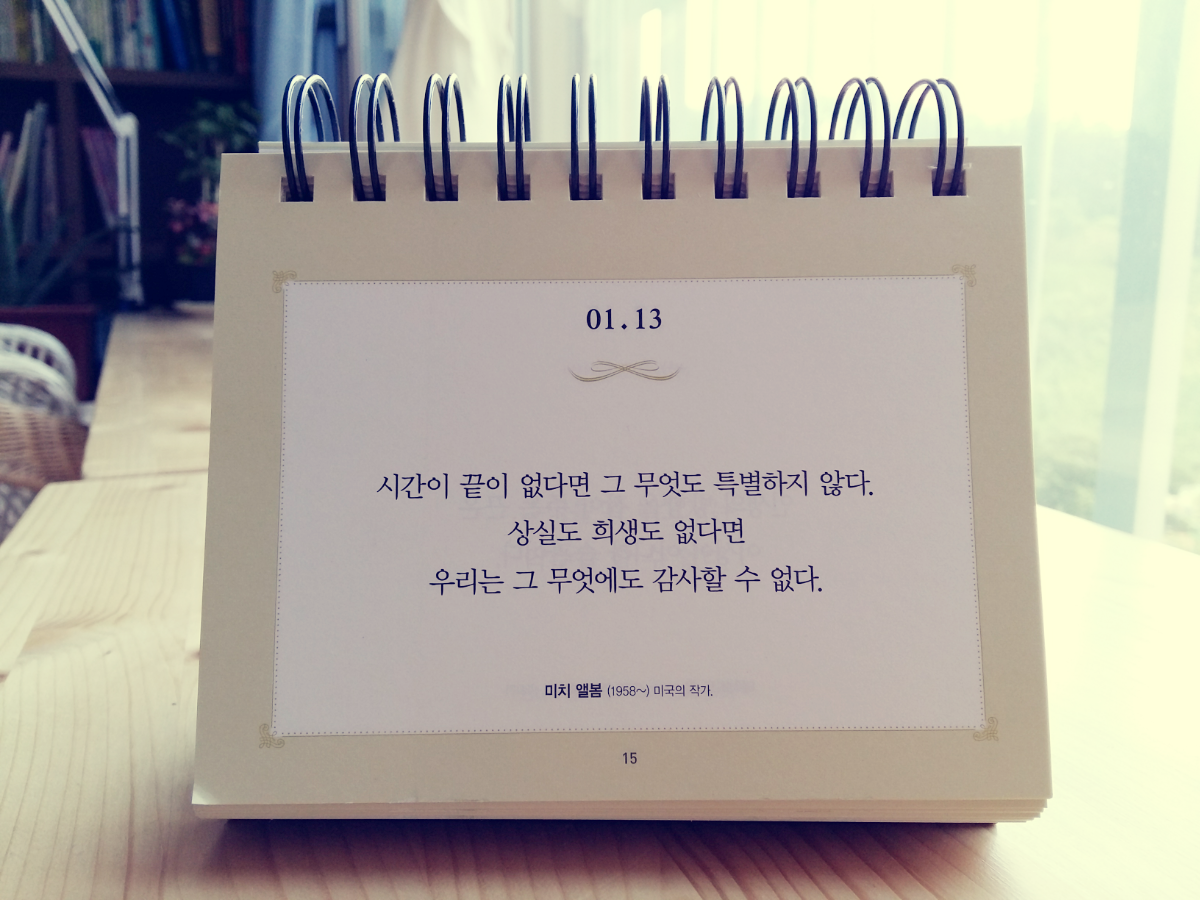 01.13
시간이 끝이 없다면 그 무엇도 특별하지 않다.
상실도 희생도 없다면
우리는 그 무엇에도 감사할 수 없다.
미치 앨봄 (1958~) 미국의 작가.
15